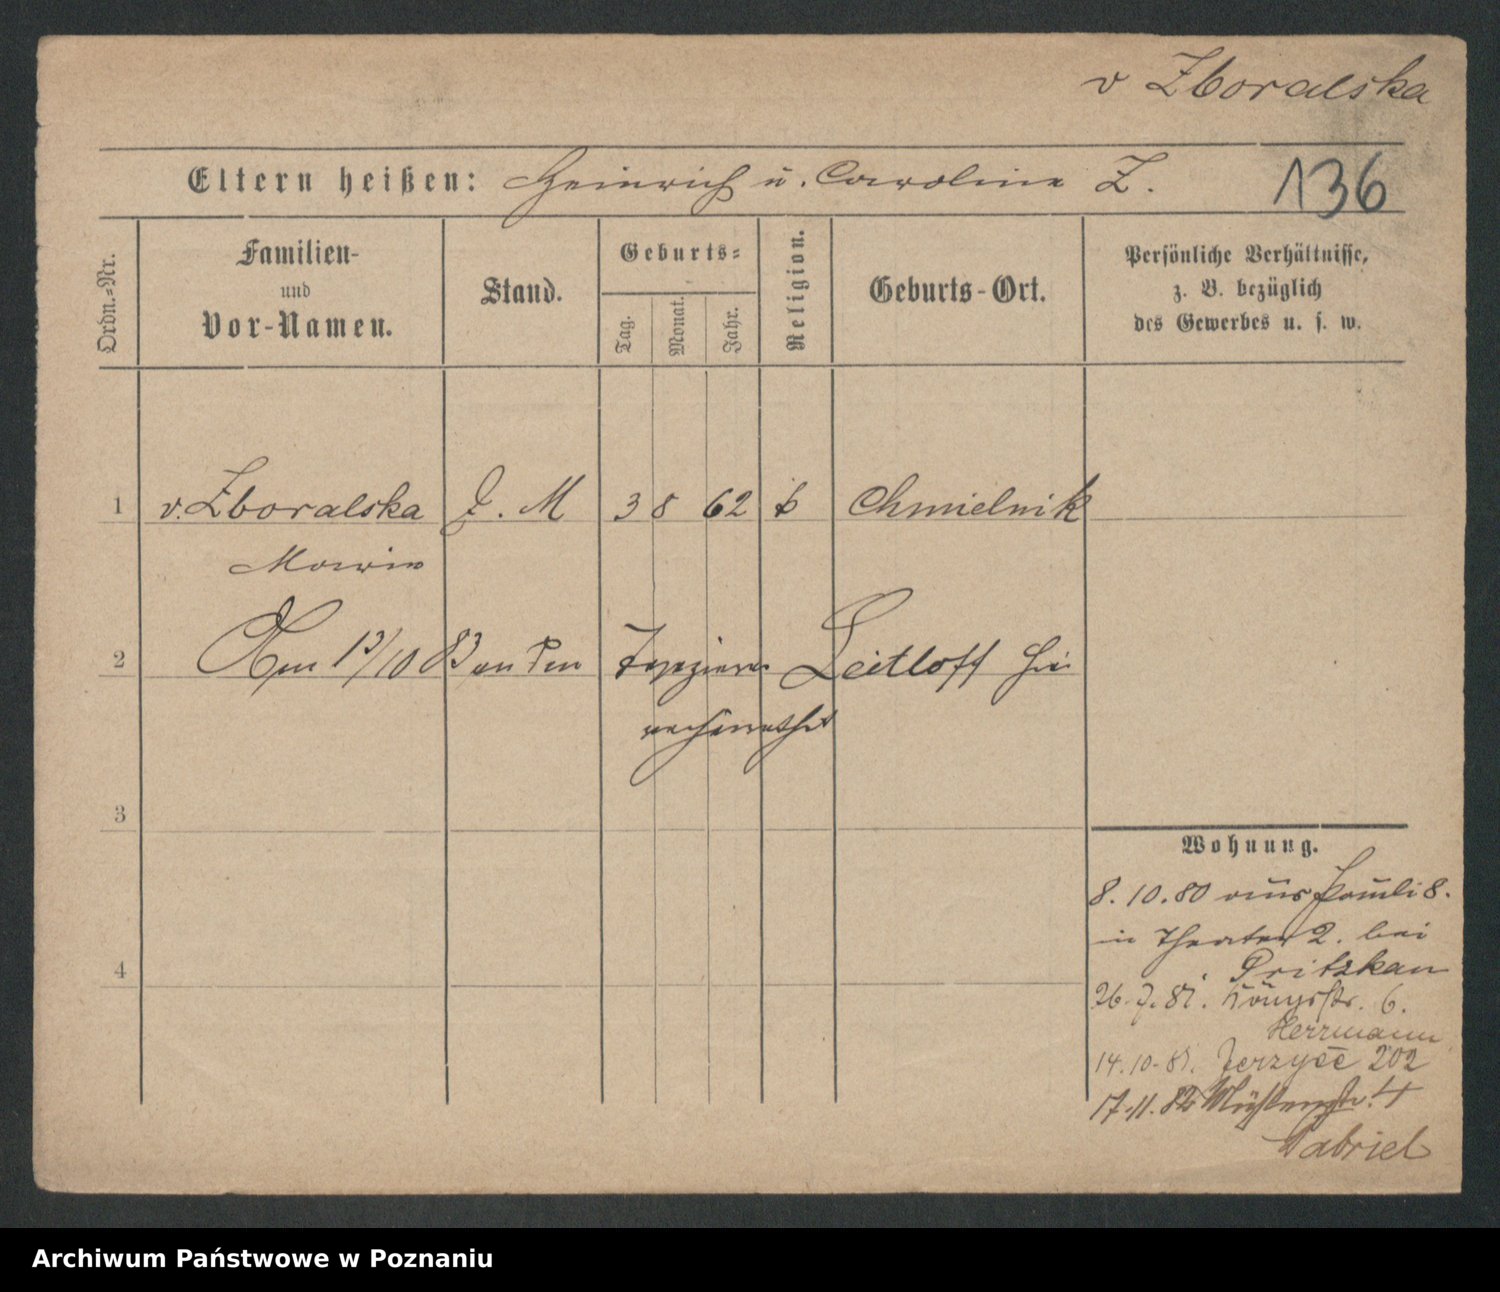 v Zboralska
Eltern heißen: Heinrich u. Caroline Z.
136
Ordn.=Nr.
Familien-
und
Vor-Namen.
Stand.
Geburts=
Tag.
Monat.
Jahr.
Religion.
Geburts-Ort.
Persönliche Verhältnisse,
z. B. bezüglich
des Gewerbes u. s. w.
1 v. Zboralska D. M 3 8 62 k Chmielnik
Marie
2 Am 13/10 83 an den Tapezierer Leitloff hier
verheirathet
3
4
Wohnung.
8. 10. 80 aus Pauli 8.
in Theater 2. bei
Pritzkau
26. 7. 81. Königsstr. 6.
Herrmann
14. 10. 81. Jerzyce 202
17. 11. 82 Mühlenstr. 4
Gabriel
Archiwum Państwowe w Poznaniu